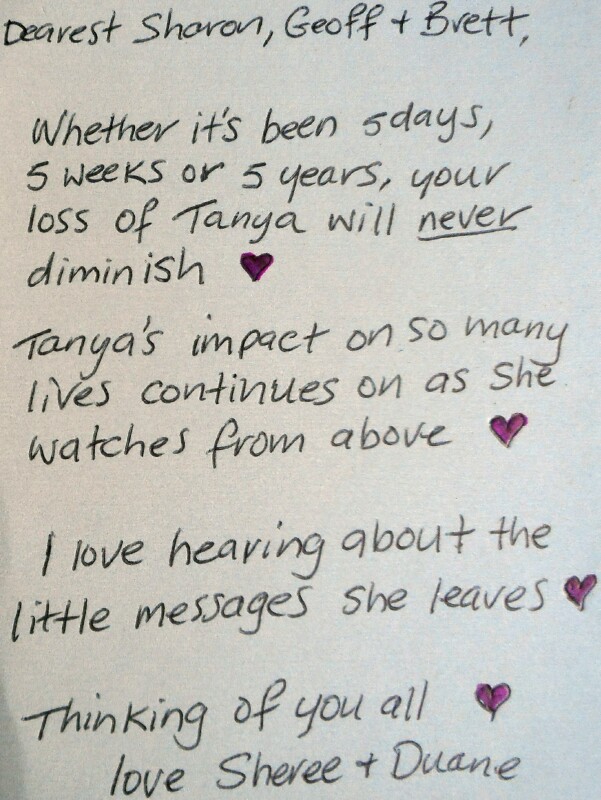 Dearest Sharon, Geoff + Brett,
Whether it's been 5 days,
5 weeks or 5 years, your
loss of Tanya will never
diminish ♥
Tanya's impact on so many
lives continues on as she
watches from above ♥
I love hearing about the
little messages she leaves ♥
Thinking of you all ♥
love Sheree + Duane